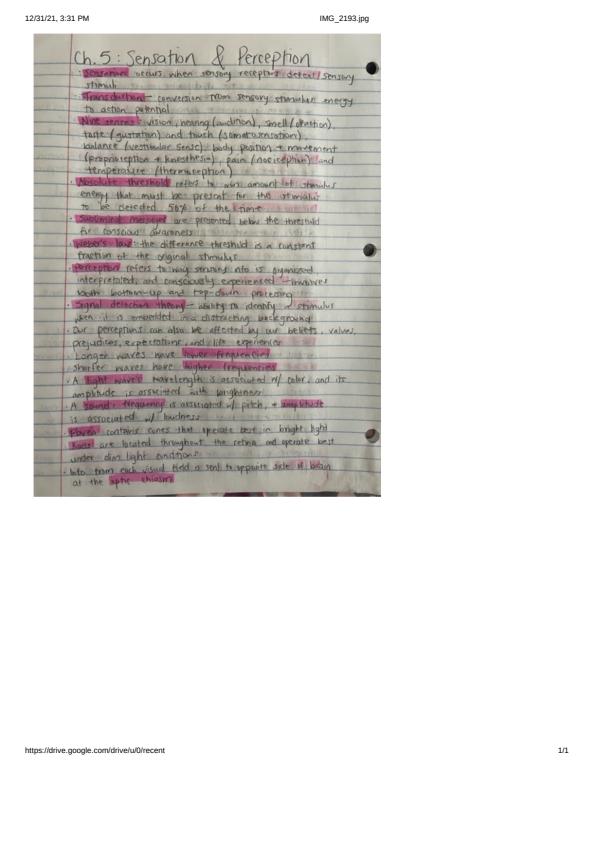 12/31/21, 3:31 PM
IMG_2193.jpg
Ch. 5: Sensation & Perception
· Sensation occurs when sensory receptors detect sensory
stimuli
· Transduction- conversion from sensory stimulus energy
to action potential
· Nine senses: vision, hearing (audition), smell (olfaction),
taste (gustation) and touch (somatosensation),
balance (vestibular sense) body position + movement
(proprioception + kinesthesia), pain (nociception) and
temperature (thermoception)
· Absolute threshold refers to min amount of stimulus
energy that must be present for the stimulus
to be detected 50% of the time
· Subliminal messages are presented below the threshold
for conscious awareness
· Weber's law- the difference threshold is a constant
fraction of the original stimulus
· Perception refers to way sensory info is organized,
interpretated, and consciously experienced - involves
both bottom-up and top-down processing
· Signal detection theory- ability to identify a stimulus
when it is embedded in a distracting background
· Our perceptions can also be affected by our beliefs, values,
prejudices, expectations, and life experiences
· Longer waves have lower frequencies
shorter waves have higher frequencies
· A light wave's wavelength is associated w/ color, and its
amplitude is associated with brightness
· A sound's frequency is associated w/ pitch, + amplitude
is associated w/ loudness
· Fovea contains cones that operate best in bright light
· Rods are located throughout the retina and operate best
under dim light conditions
· Info from each visual field is sent to opposite side of brain
at the optic chiasm
https://drive.google.com/drive/u/0/recent
1/1